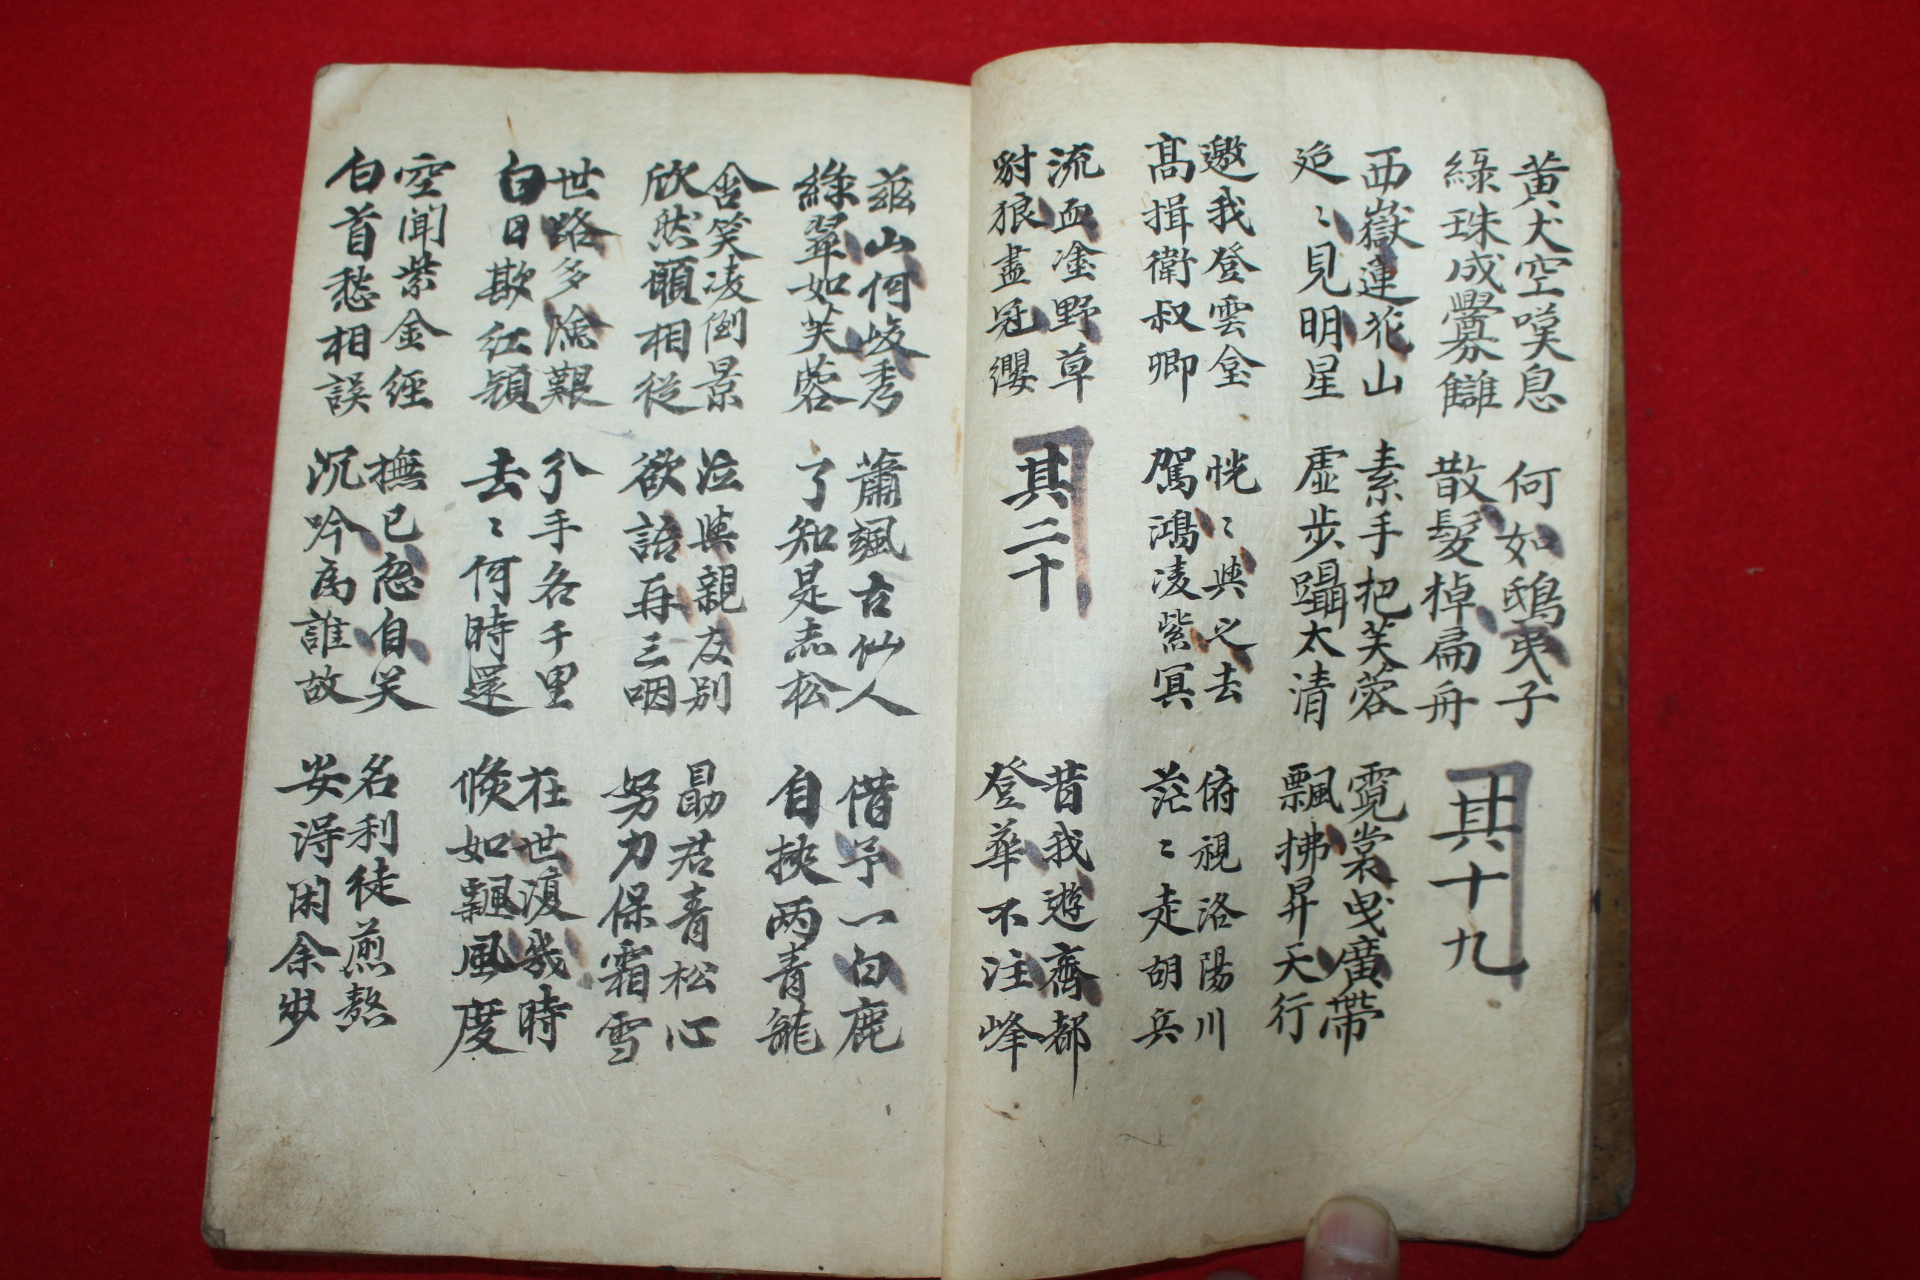 黃犬空嘆息
綠珠成釁讎
何如鴟夷子
散髮棹扁舟
其十九
西嶽蓮花山
迢〻見明星
素手把芙蓉
虛步躡太清
霓裳曳廣帶
飄拂昇天行
邀我登雲臺
高揖衛叔卿
恍〻與之去
駕鴻凌紫冥
俯視洛陽川
茫〻走胡兵
流血塗野草
豺狼盡冠纓
其二十
昔我遊齊都
登華不注峰
茲山何峻秀
綠翠如芙蓉
蕭颯古仙人
了知是赤松
借予一白鹿
自挾両青龍
含笑凌倒景
欣然願相從
泣與親友別
欲語再三咽
勗君青松心
努力保霜雪
世路多險艱
白日欺紅顏
分手各千里
去〻何時還
在世復幾時
倏如飄風度
空聞紫金經
白首愁相誤
撫已忽自笑
沉吟為誰故
名利徒煎熬
安得閑余步